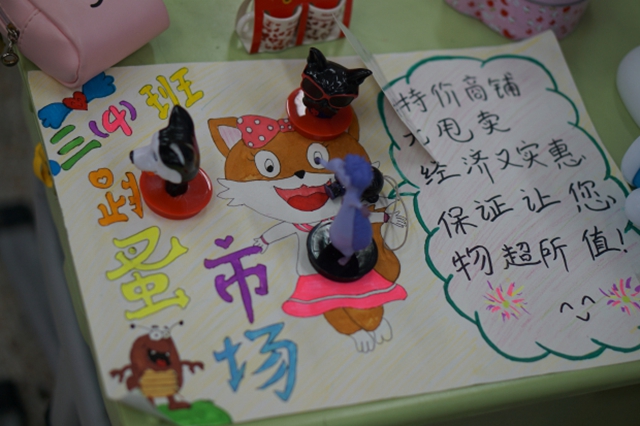 三(4)班
跳
蚤市
场
特价商铺
大甩卖
经济又实惠
保证让您
物超所值!